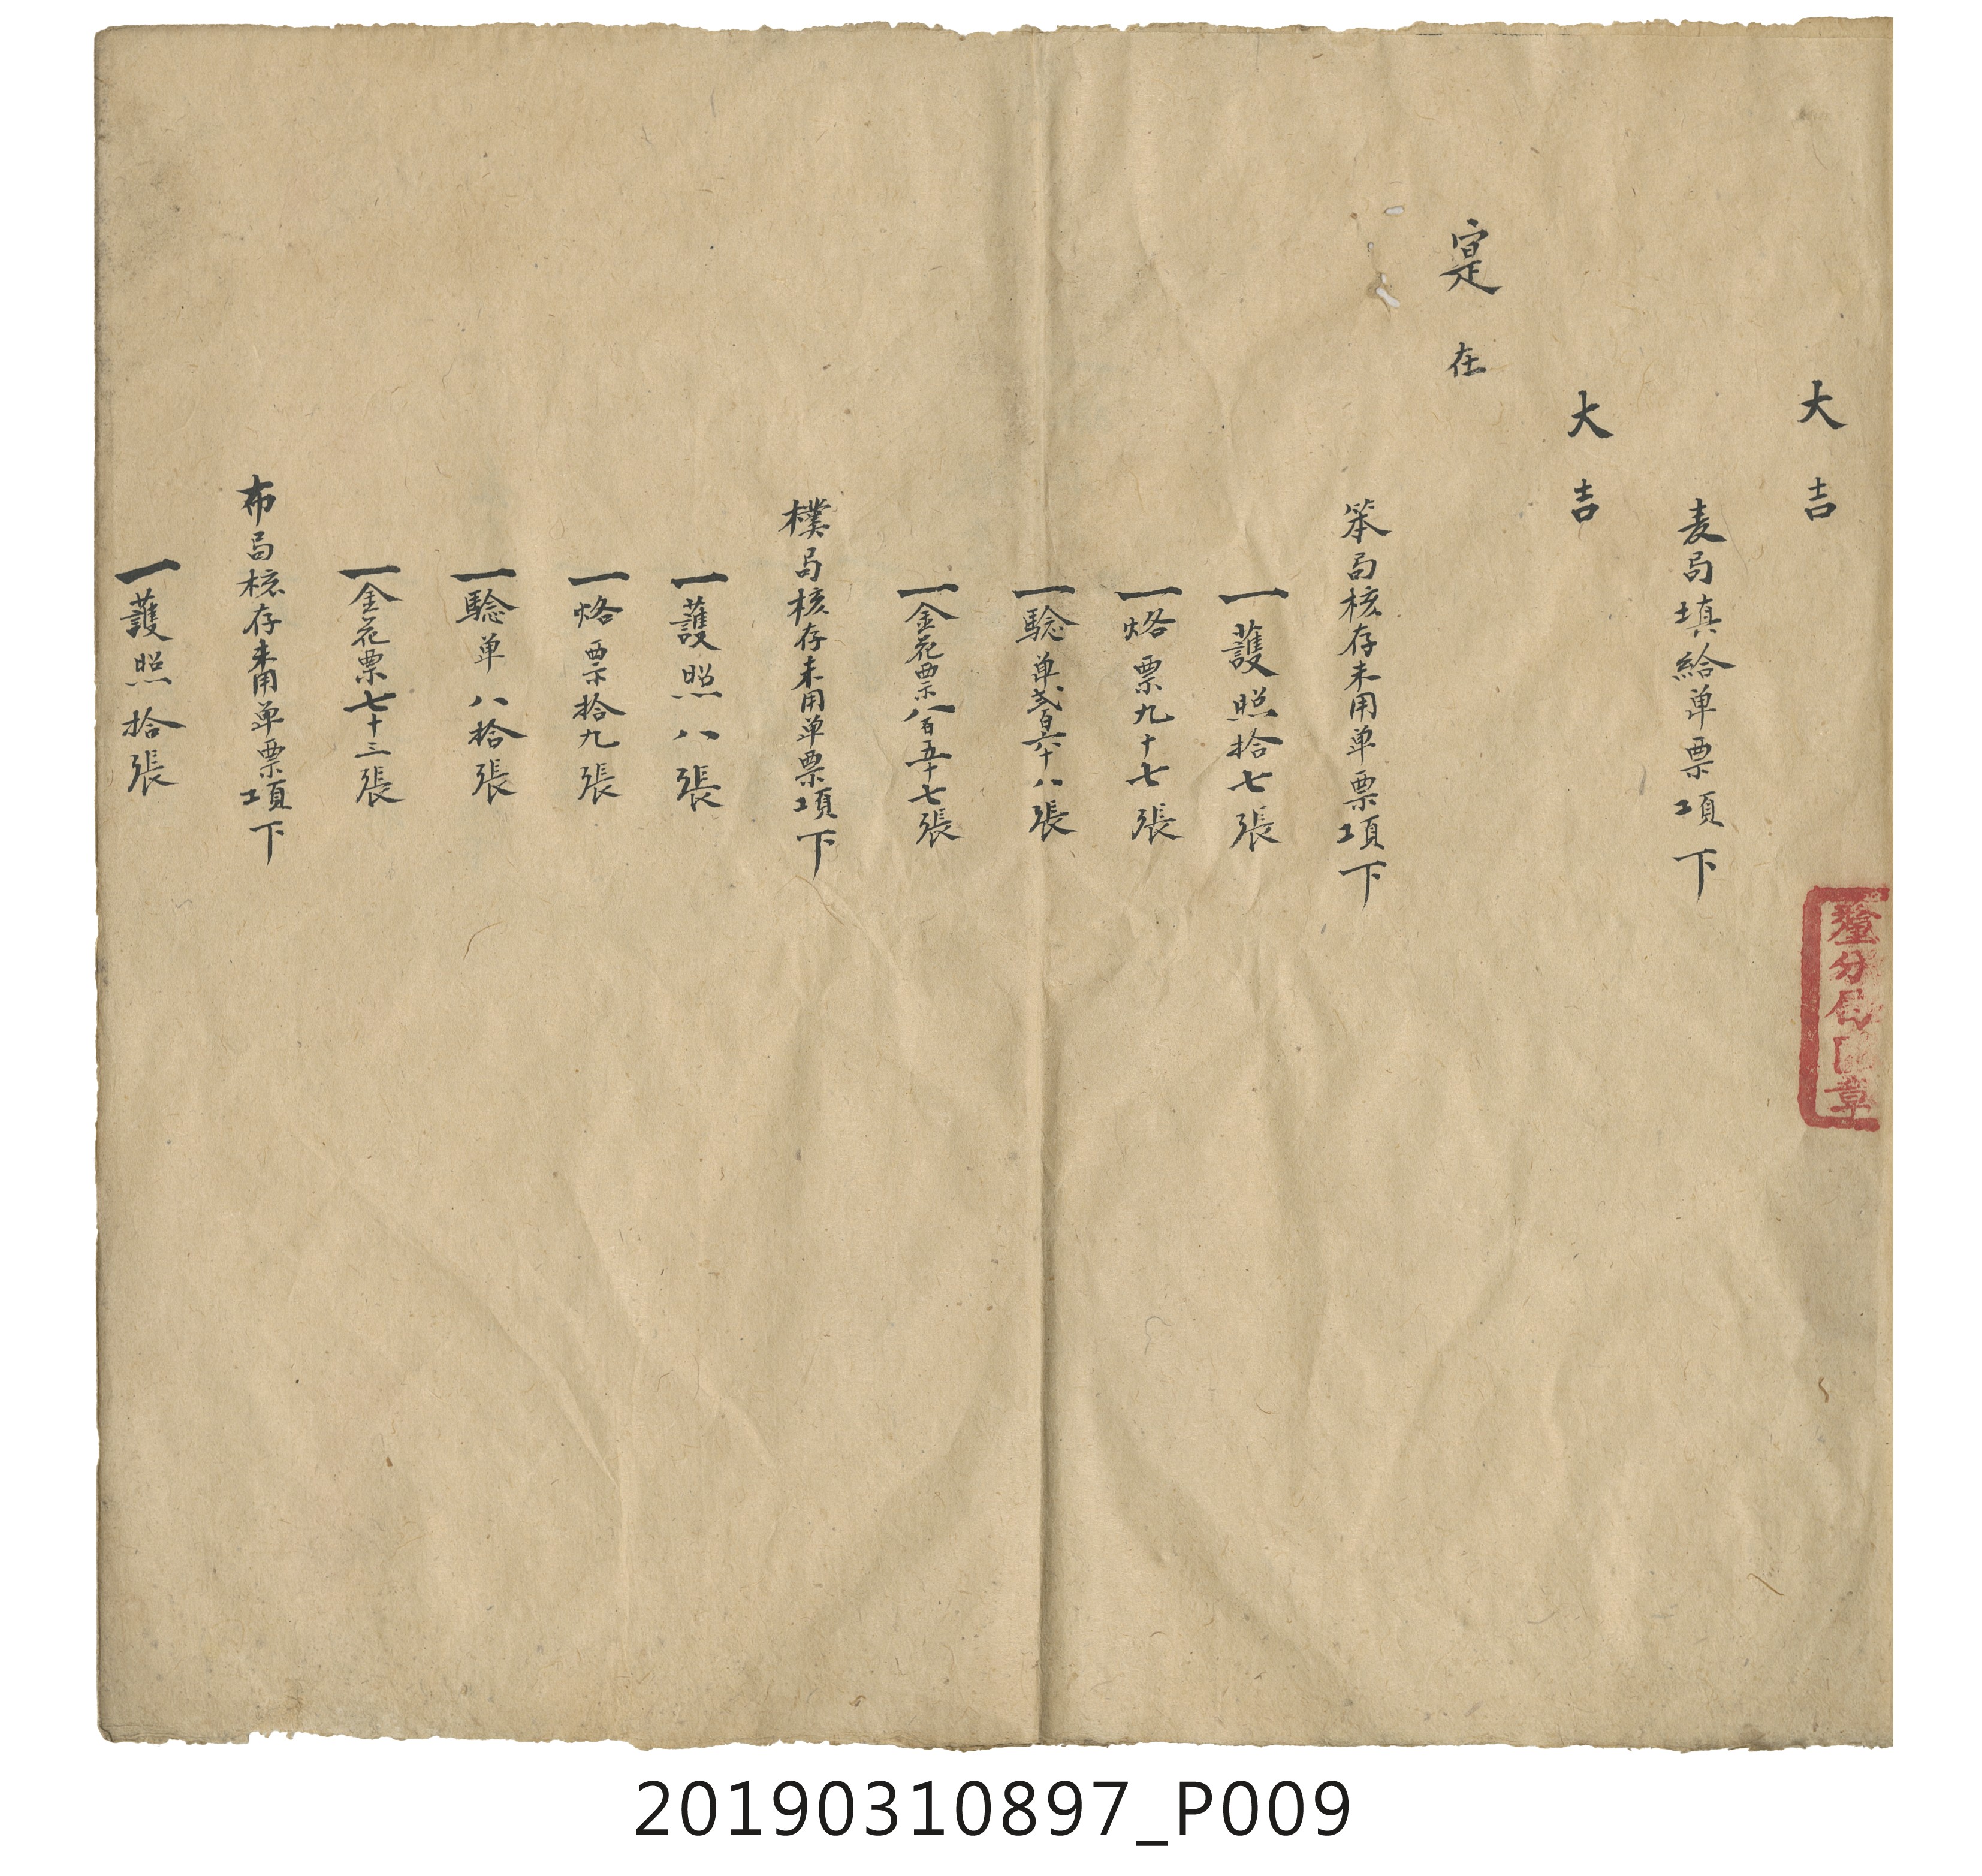 大吉
麦局填給单票項下
大吉
寔在
笨局核存未用单票項下
一護照拾七張
一烙票九十七張
一驗单弍百六十八張
一金花票八百五十七張
樸局核存未用单票項下
一護照八張
一烙票拾九張
一驗单八拾張
一金花票七十三張
布局核存未用单票項下
一護照拾張
釐分局章
20190310897_P009